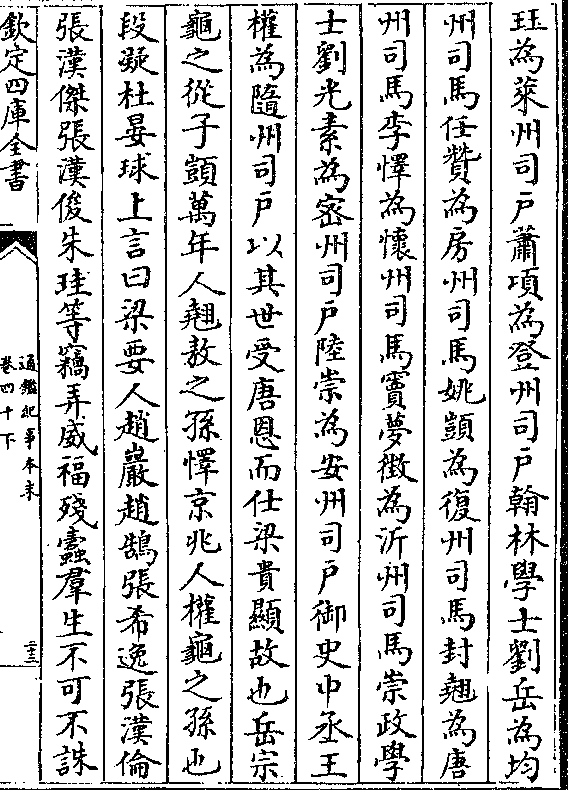 珏為萊州司戶蕭頊為登州司戶翰林學士劉岳為均
州司馬任贊為房州司馬姚顗為復州司馬封翹為唐
州司馬李懌為懷州司馬竇夢徵為沂州司馬崇政學
士劉光素為密州司戶陸崇為安州司戶御史中丞王
權為隨州司戶以其世受唐恩而仕梁貴顯故也岳宗
龜之從子顗萬年人翹敖之孫懌京兆人權龜之孫也
段凝杜晏球上言曰梁要人趙巖趙鵠張希逸張漢倫
張漢傑張漢俊朱珪等竊弄威福殘蠹羣生不可不誅
欽定四庫全書
通鑑紀事本末
卷四十下
二十三